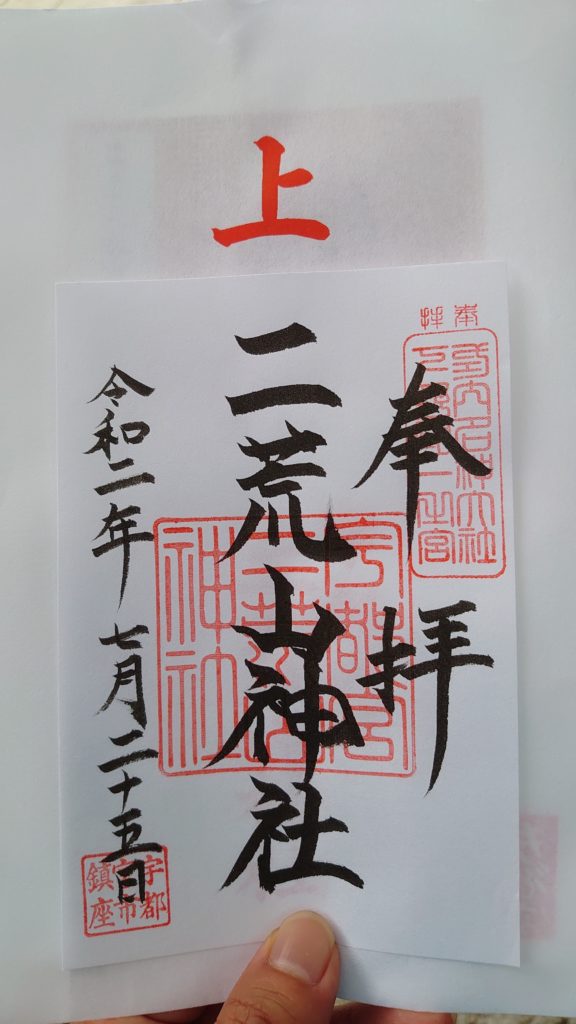 上
奉拝
式内名神大社
奉拝
二荒山神社
宇都宮
二荒山
神社
令和二年七月二十五日
宇都
宮市
鎮座